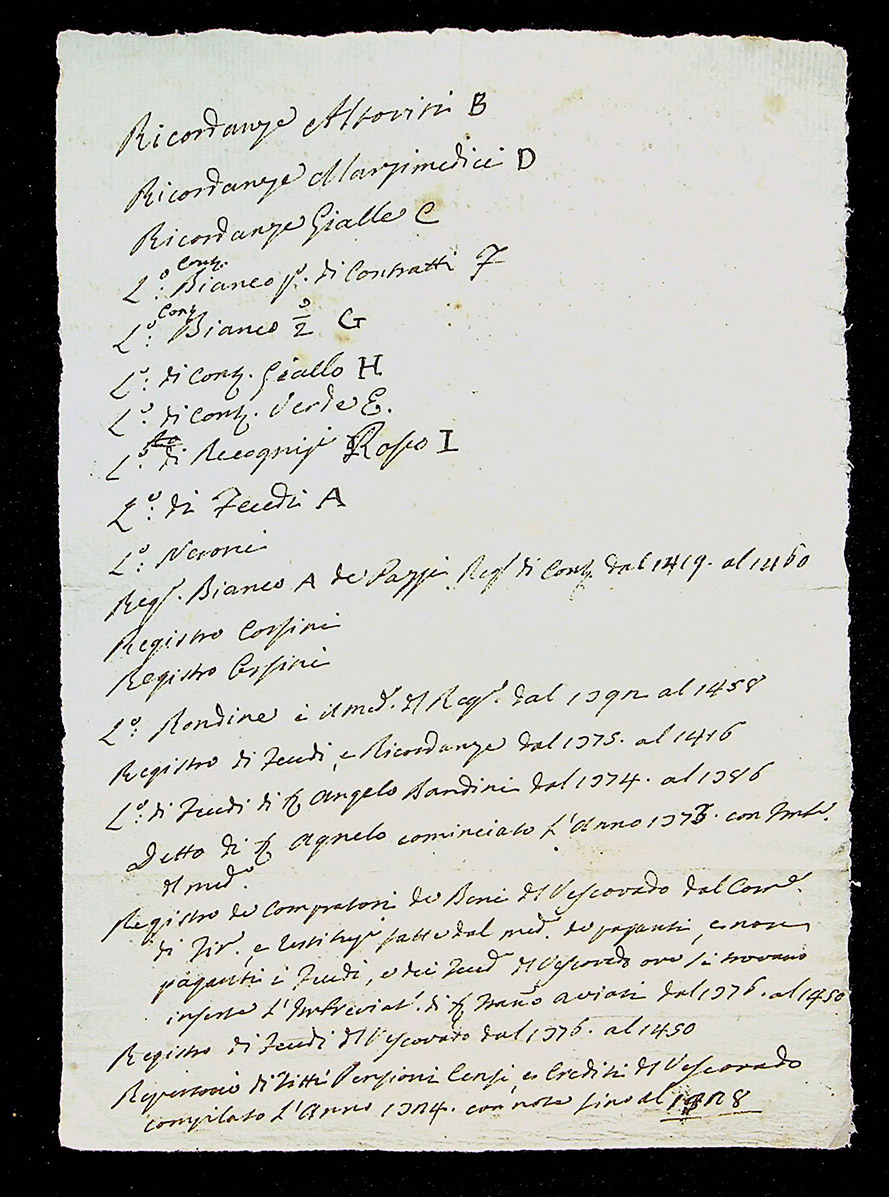 Ricordanze Altoviti B
Ricordanze Marzimedici D
Ricordanze Gialle C
L.º Contr. Bianco pº. di Contratti F
L.º Contr. Bianco 2º G
L.º di Contr. Giallo H
L.º di Contr. Verde E.
L.º di Recogniz.i Rosso I
L.º di Feudi A
L.º Neroni
Reg.º Bianco A de Pazzi Reg.º di Contr. dal 1419. al 1460
Registro Corsini
Registro Corsini
L.º Rondine è il med.º del Reg.º dal 1392 al 1458
Registro di Feudi, e Ricordanze dal 1375. al 1416
L.º di Feudi di Angelo Bandini dal 1374. al 1386
Detto di Agnelo cominciato l'Anno 1373. con Imbr.
del med.º
Registro de Compratori de Beni del Vescovado dal Com.e
di Fir.e, e restituz.i fatte dal med.º de paganti, e non
paganti i Feudi, e dei Feud. del Vescovado ove si trovano
inserte l'Imbreviat. di Aviati dal 1376. al 1450
Registro di Feudi del Vescovado dal 1376. al 1450
Repertorio di Fitti Pensioni Censi, e Crediti del Vescovado
compilato l'Anno con note fino al